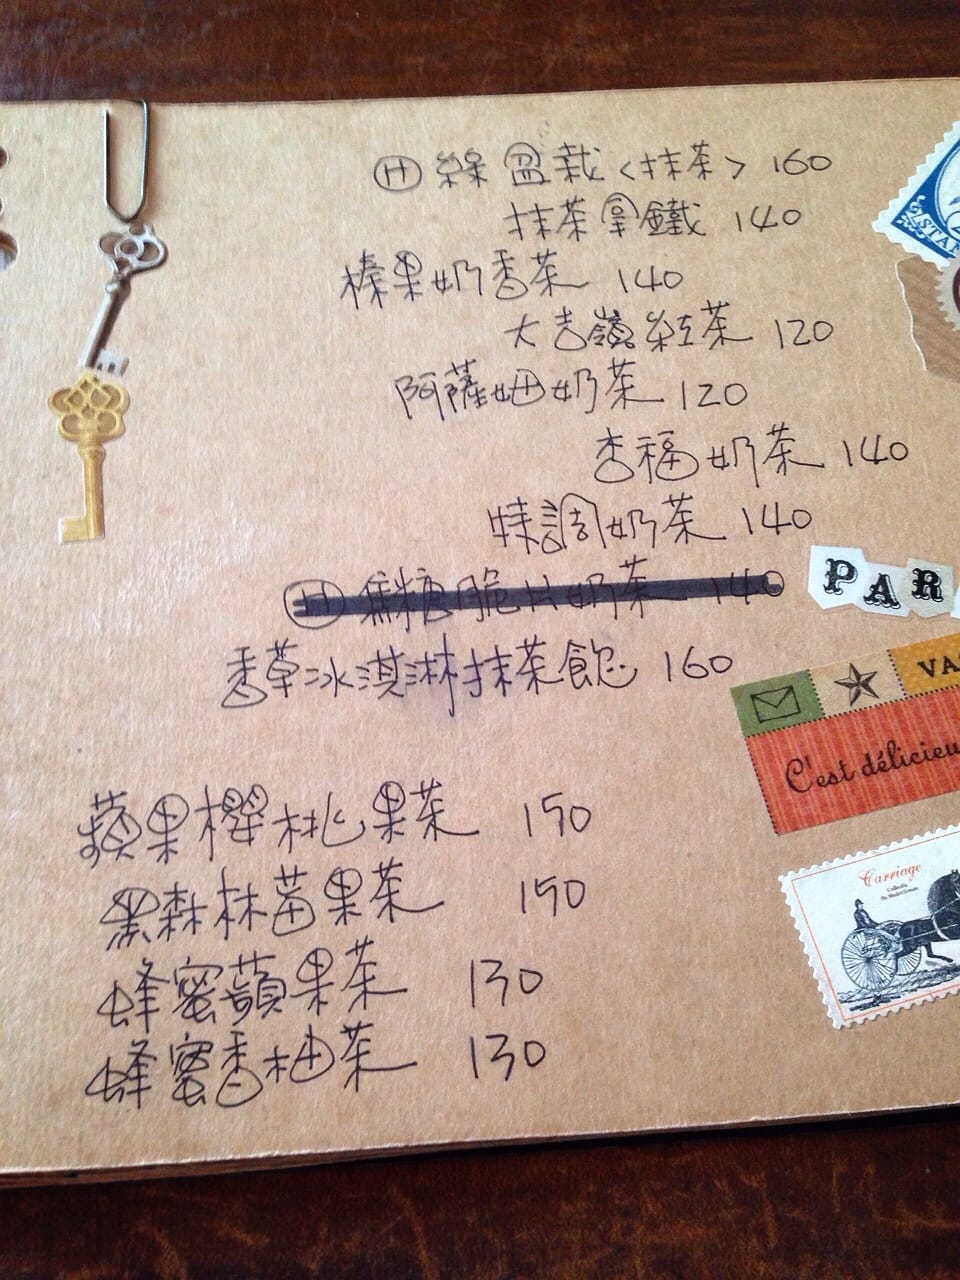 Ⓗ 綠盆栽<抹茶> 160
抹茶拿鐵 140
榛果奶香茶 140
大吉嶺紅茶 120
阿薩姆奶茶 120
杏福奶茶 140
特調奶茶 140
Ⓗ 焦糖脆片奶茶 140
香草冰淇淋抹茶飲 160
蘋果櫻桃果茶 150
黑森林莓果茶 150
蜂蜜蘋果茶 130
蜂蜜香柚茶 130
STAM
PAR
VA
C'est délicieu
Carriage